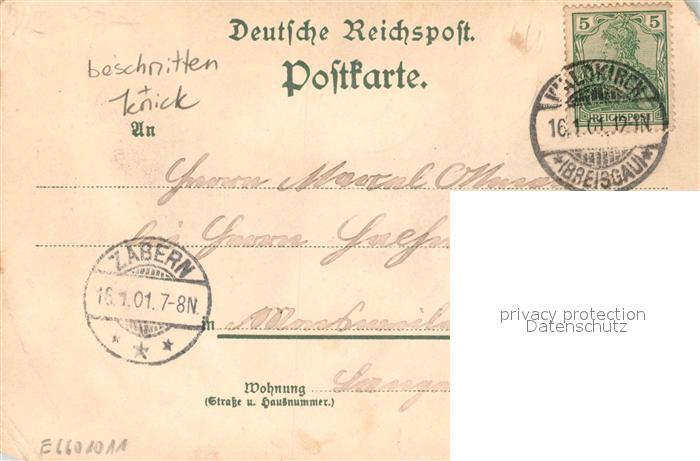 Deutsche Reichspost.
Postkarte.
beschnitten
+
knick
5 5
REICHSPOST
WALDKIRCH
16.1.01.
*(BREISGAU)*
An
Herrn Marcel
bei Herrn
ZABERN
16.1.01. 7-8N.
* * *
in
Wohnung
(Straße u. Hausnummer.)
privacy protection
Datenschutz
E6601011